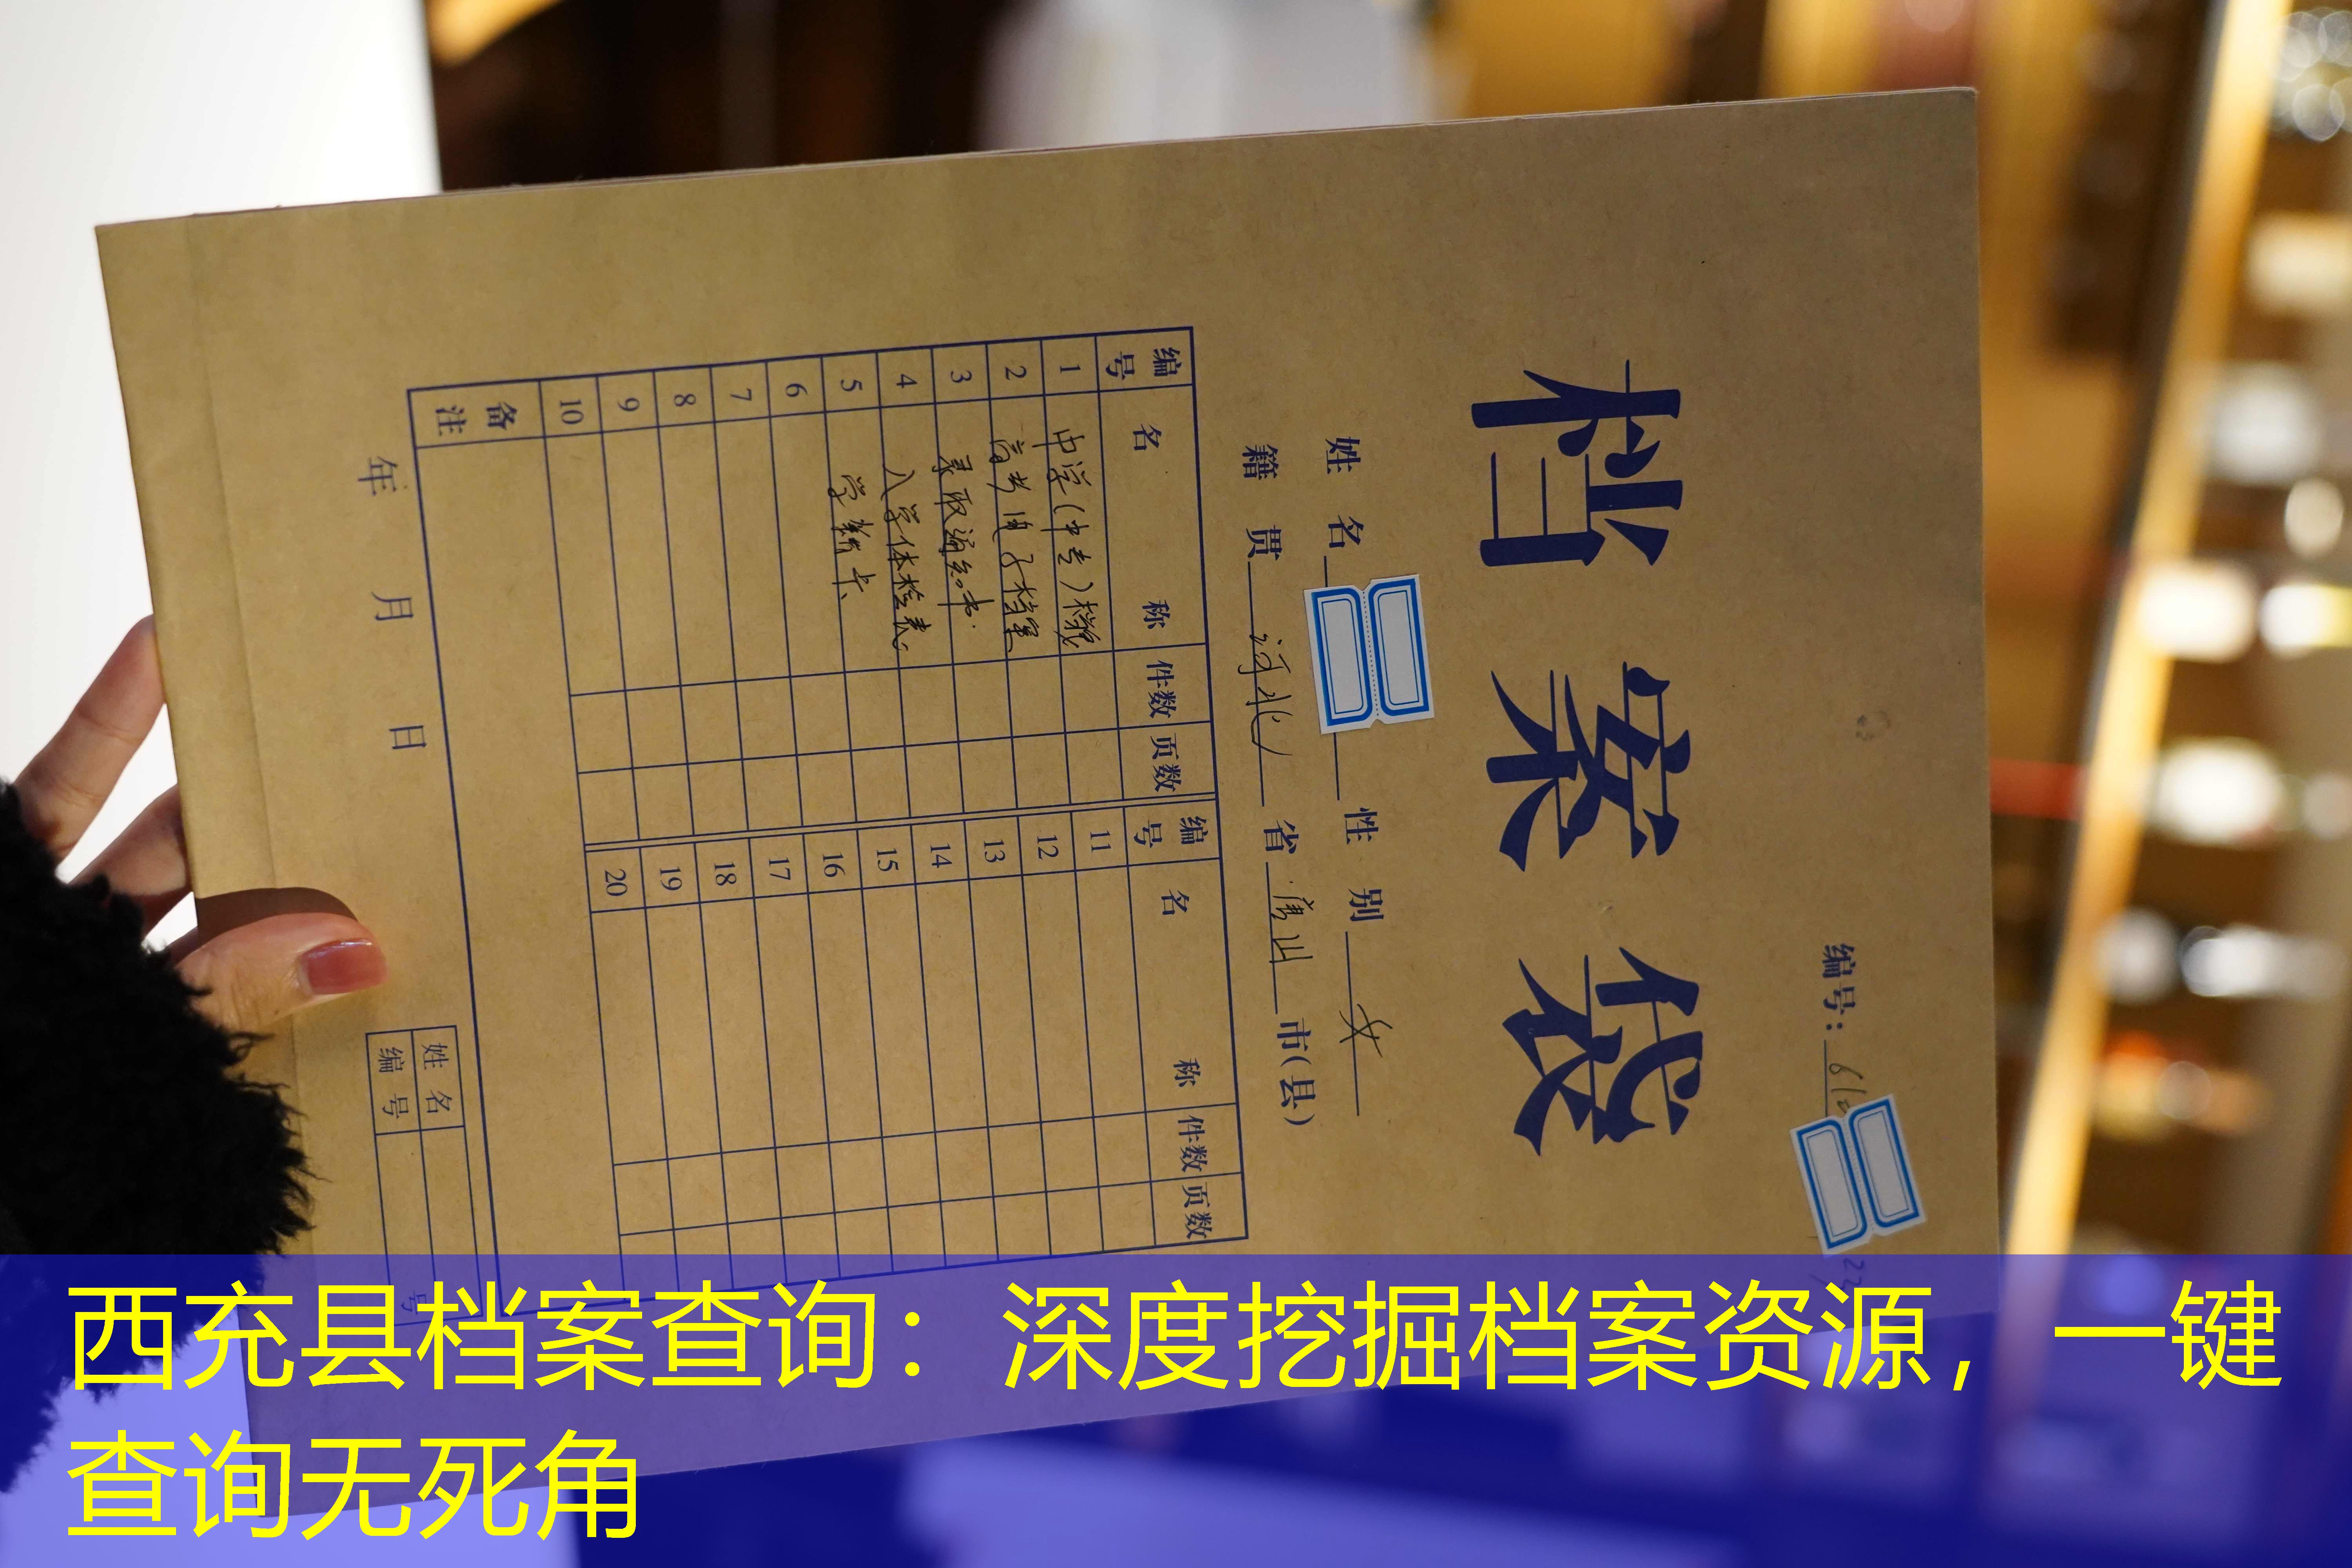 编号：
档案袋
姓名 性别 女
籍贯 河北 省 唐山 市(县)
编号 名称 件数 页数 编号 名称 件数 页数
1 中学(中专)档案 11
2 高考电子档案 12
3 录取通知书 13
4 入学体检表 14
5 学籍卡 15
6 16
7 17
8 18
9 19
10 20
备注
年 月 日
姓名
编号 号
西充县档案查询：深度挖掘档案资源，一键
查询无死角